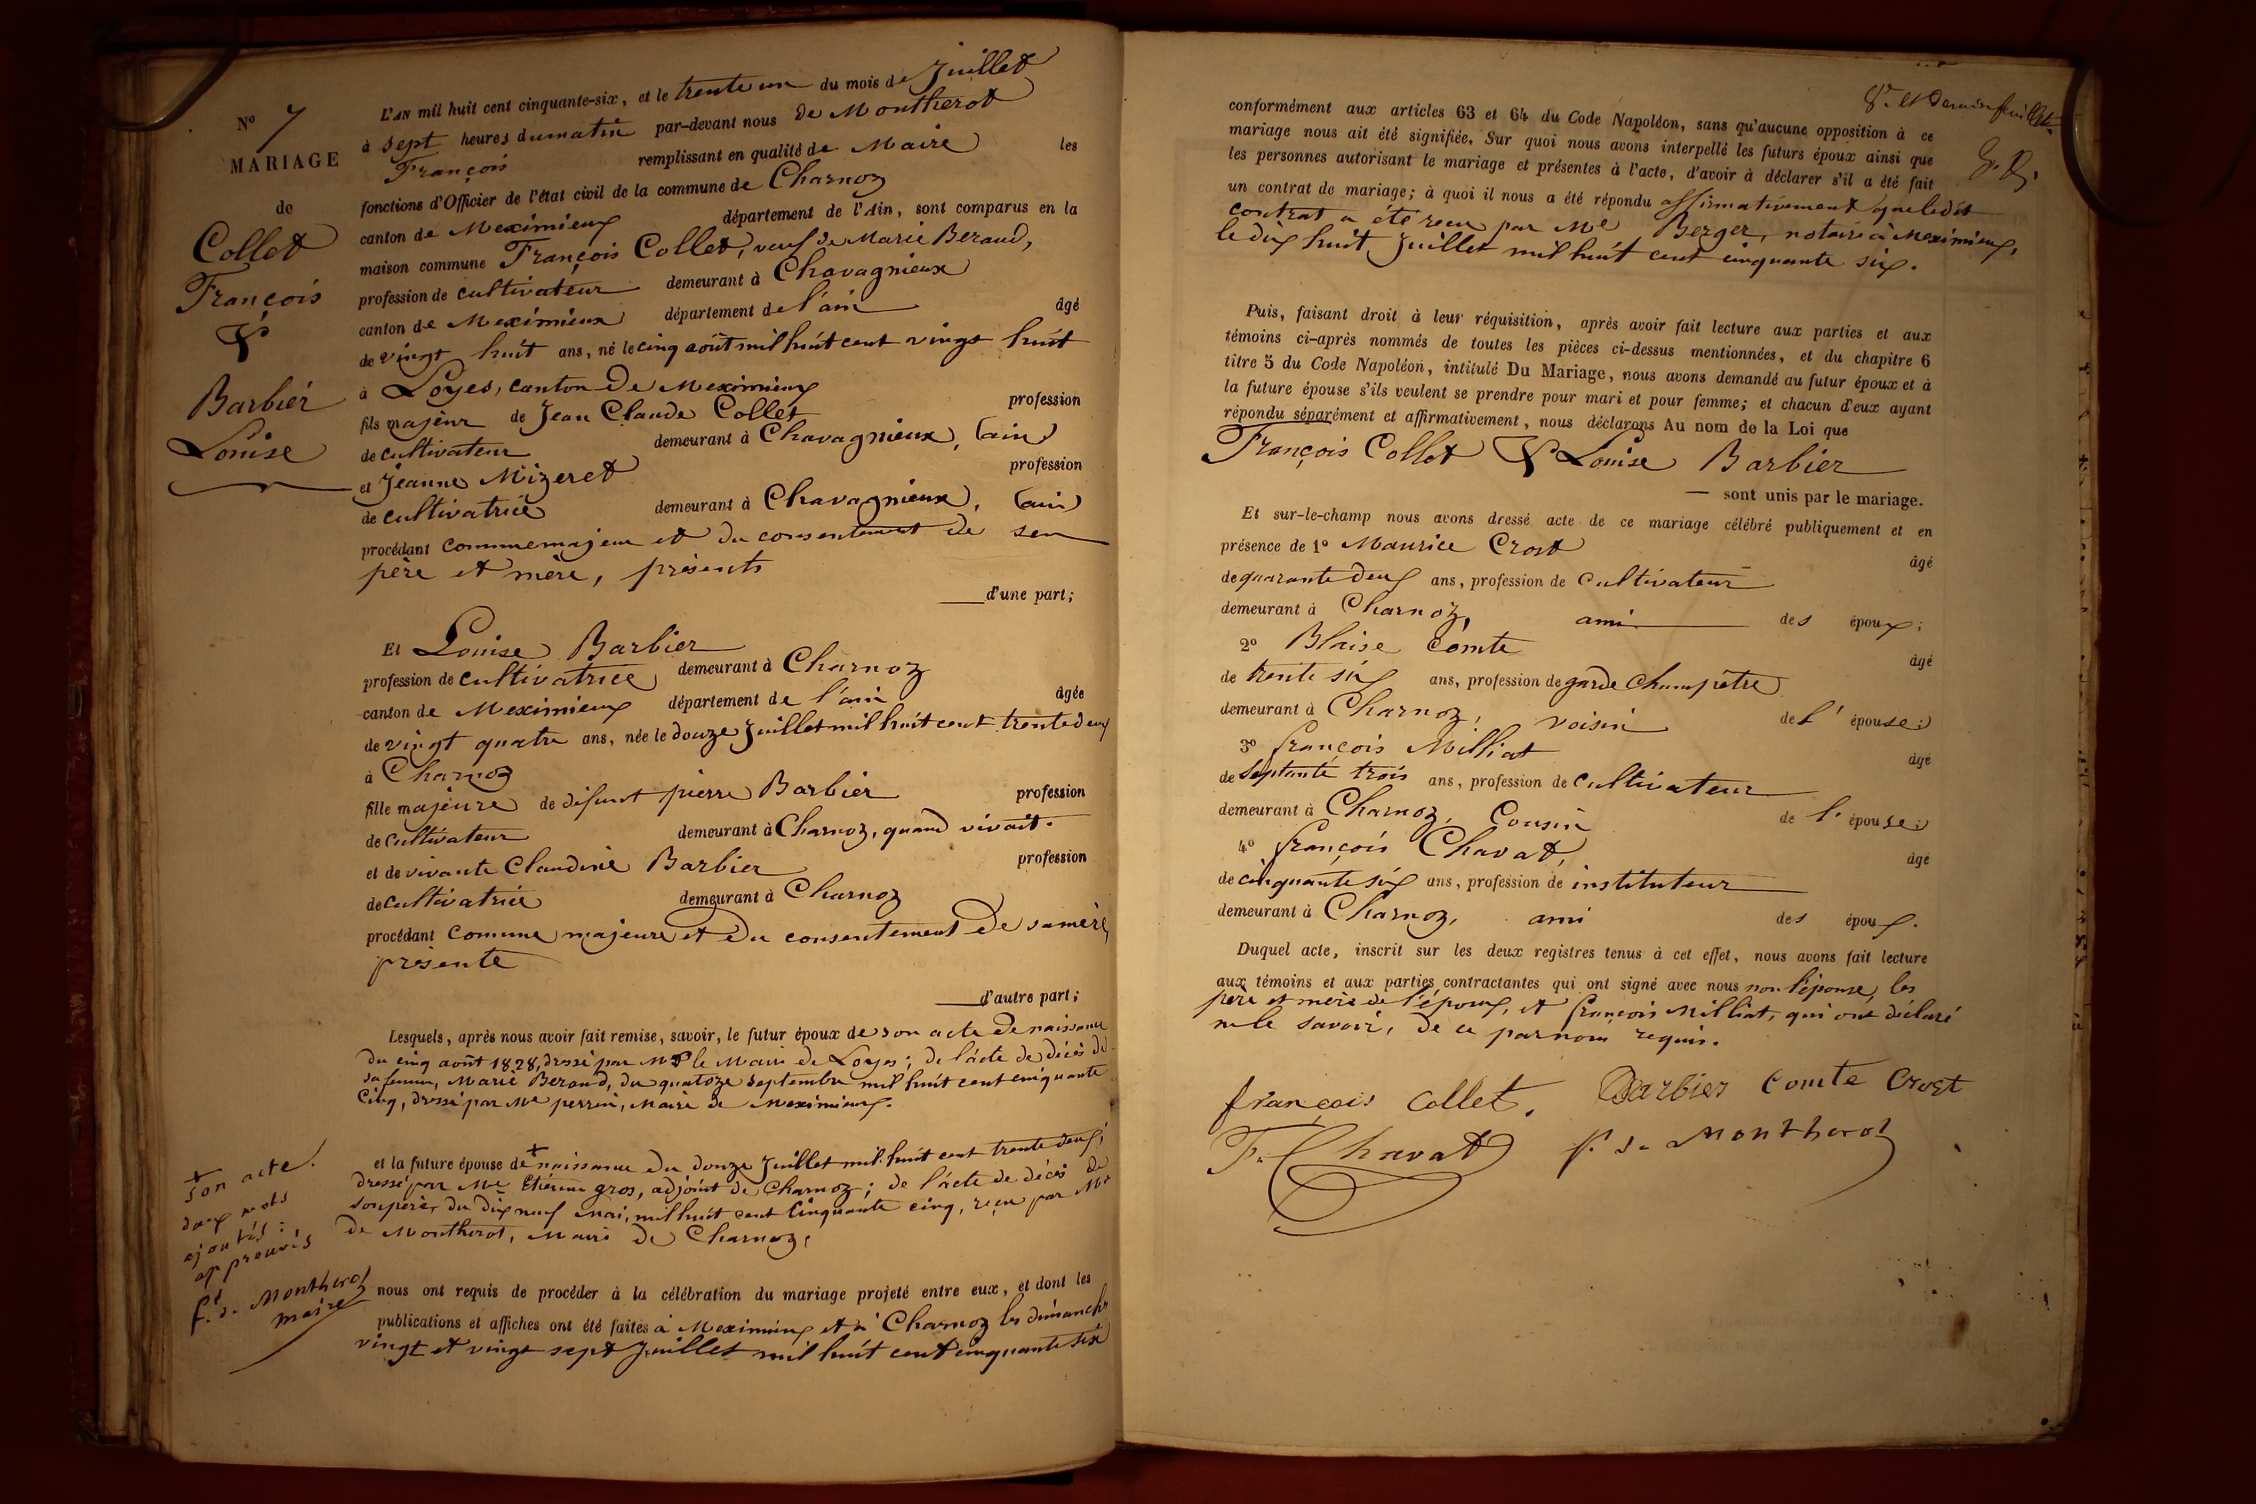 N° 7
MARIAGE
de
Collet
François
&
Barbier
Louise
L'AN mil huit cent cinquante-six, et le trente un du mois de Juillet
à sept heures du matin par-devant nous de Montherot
François remplissant en qualité de Maire les
fonctions d'Officier de l'état civil de la commune de Charnoz
canton de Meximieux département de l'Ain, sont comparus en la
maison commune François Collet, veuf de Marie Beraud,
profession de cultivateur demeurant à Chavagnieux
canton de Meximieux département de l'ain âgé
de vingt huit ans, né le cinq août mil huit cent vingt huit
à Loyes, canton de Meximieux
fils majeur de Jean Claude Collet profession
de cultivateur demeurant à Chavagnieux, (ain)
et Jeanne Mizeret profession
de cultivatrice demeurant à Chavagnieux, (ain)
procédant comme majeur et du consentement de son
père et mère, présents
d'une part;
Et Louise Barbier
profession de cultivatrice demeurant à Charnoz
canton de Meximieux département de l'ain âgée
de vingt quatre ans, née le douze Juillet mil huit cent trente deux
à Charnoz
fille majeure de défunt pierre Barbier profession
de cultivateur demeurant à Charnoz, quand vivait.
et de vivante Claudine Barbier profession
de cultivatrice demeurant à Charnoz
procédant comme majeure et du consentement de sa mère,
présente
d'autre part;
Lesquels, après nous avoir fait remise, savoir, le futur époux de son acte de naissance
du cinq août 1828, dressé par Mr le Maire de Loyes; de l'acte de décès de
sa femme, Marie Beraud, du quatorze septembre mil huit cent cinquante
cinq, dressé par Me perrin, Maire de Meximieux.
et la future épouse de + naissance du douze Juillet mil huit cent trente deux,
dressé par Me Etienne gros, adjoint de Charnoz; de l'acte de décès de
son père, du dix neuf Mai, mil huit cent cinquante cinq, reçu par Mr
de Montherot, Maire de Charnoz,
+ son acte.
deux mots
ajoutés :
approuvés
f. de Montherot
maire
nous ont requis de procéder à la célébration du mariage projeté entre eux, et dont les
publications et affiches ont été faites à Meximieux et à Charnoz les dimanche
vingt et vingt sept Juillet mil huit cent cinquante six
8e et dernier feuillet
conformément aux articles 63 et 64 du Code Napoléon, sans qu'aucune opposition à ce
mariage nous ait été signifiée. Sur quoi nous avons interpellé les futurs époux ainsi que
les personnes autorisant le mariage et présentes à l'acte, d'avoir à déclarer s'il a été fait
un contrat de mariage; à quoi il nous a été répondu affirmativement que ledit
contrat a été reçu par Me Berger, notaire à Meximieux,
le dix huit Juillet mil huit cent cinquante six.
Puis, faisant droit à leur réquisition, après avoir fait lecture aux parties et aux
témoins ci-après nommés de toutes les pièces ci-dessus mentionnées, et du chapitre 6
titre 5 du Code Napoléon, intitulé Du Mariage, nous avons demandé au futur époux et à
la future épouse s'ils veulent se prendre pour mari et pour femme; et chacun d'eux ayant
répondu séparément et affirmativement, nous déclarons Au nom de la Loi que
François Collet & Louise Barbier
— sont unis par le mariage.
Et sur-le-champ nous avons dressé acte de ce mariage célébré publiquement et en
présence de 1° Maurice Crost âgé
de quarante deux ans, profession de cultivateur
demeurant à Charnoz, ami des époux;
2° Blaise Comte âgé
de trente six ans, profession de garde champêtre
demeurant à Charnoz, voisin de l'épouse;
3° françois Milliat âgé
de septante trois ans, profession de cultivateur
demeurant à Charnoz, Cousin de l'épouse;
4° françois Chavat, âgé
de cinquante six ans, profession de instituteur
demeurant à Charnoz, ami des époux.
Duquel acte, inscrit sur les deux registres tenus à cet effet, nous avons fait lecture
aux témoins et aux parties contractantes qui ont signé avec nous non l'épouse, les
père et mère de l'époux, et françois Milliat, qui ont déclaré
ne le savoir, de ce par nous requis.
françois collet. Barbier Comte Crost
F. Chavat f. de Montherot